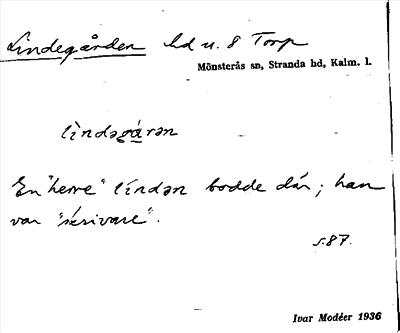 Lindegården hd u. 8 Torp
Mönsterås sn, Stranda hd, Kalm. l.
líndəgá̀rən
En "herre" líndən bodde där; han
var "skrivare".
s. 87.
Ivar Modéer 1936